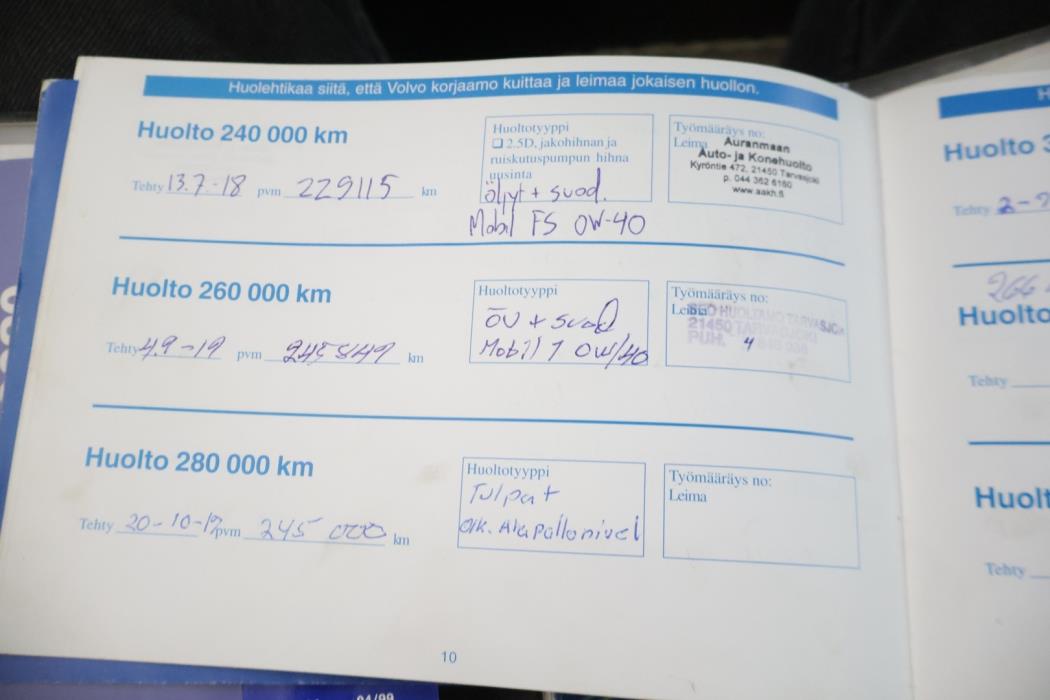 Huolehtikaa siitä, että Volvo korjaamo kuittaa ja leimaa jokaisen huollon.
Huolto 240 000 km
Tehty 13.7-18 pvm 229115 km
Huoltotyyppi
❑ 2.5D, jakohihnan ja
ruiskutuspumpun hihna
uusinta
öljyt + suod.
Mobil FS 0W-40
Työmääräys no:
Leima
Auranmaan
Auto- ja Konehuolto
Kyröntie 472, 21450 Tarvasjoki
p. 044 362 6160
www.aakh.fi
Huolto 260 000 km
Tehty 4.9-19 pvm km
Huoltotyyppi
öv + suod
Mobil 1 0W/40
Työmääräys no:
Leima
HUOLTAMO TARVASJOKI
21450 TARVASJOKI
PUH.
Huolto 280 000 km
Tehty 20-10-19 pvm 245 000 km
Huoltotyyppi
Tulpat
oik. Alapallonivel
Työmääräys no:
Leima
10
04/99
H
Huolto 3
Tehty 2-
266
Huolto
Tehty
Huolt
Tehty